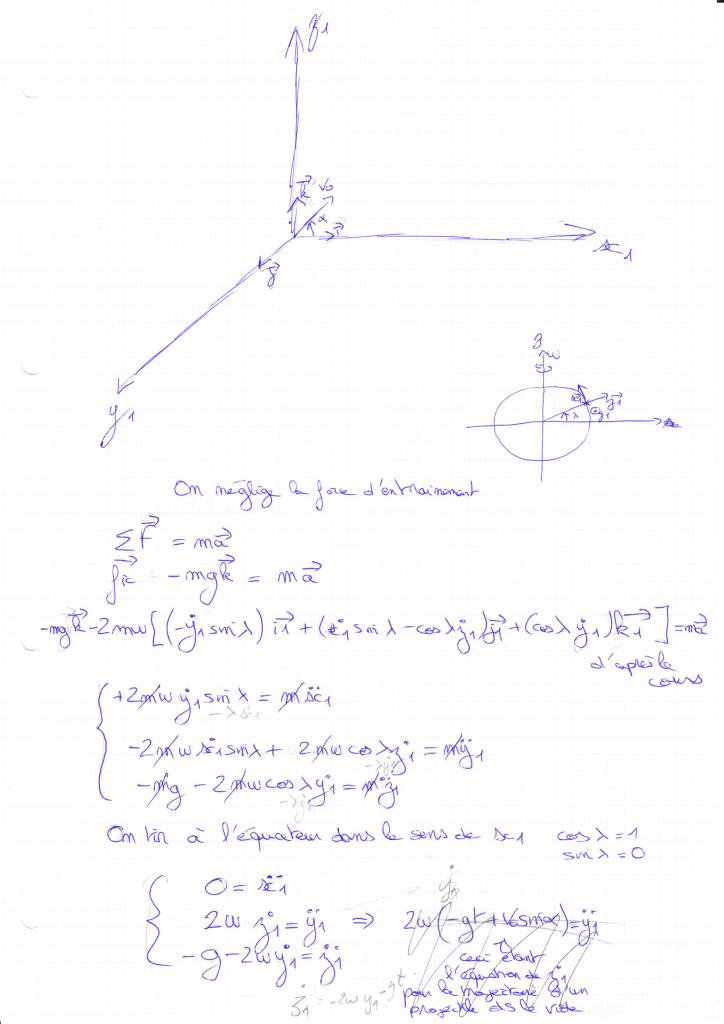 z₁
k⃗ V₀
α i⃗
x₁
j⃗
y₁
z
ω
λ
On néglige la force d'entrainement
ΣF⃗ = ma⃗
f⃗ic - mgk⃗ = ma⃗
-mgk⃗ - 2mω[(-ẏ₁ sinλ) i⃗₁ + (ẋ₁ sinλ - cosλ ż₁) j⃗₁ + (cosλ ẏ₁) k⃗₁] = ma⃗
d'après le
cours
+2mω ẏ₁ sinλ = mẍ₁
-2mω ẋ₁ sinλ + 2mω cosλ ż₁ = mÿ₁
-mg - 2mω cosλ ẏ₁ = mz̈₁
On tir à l'équateur dans le sens de x₁ cosλ = 1
sinλ = 0
0 = ẍ₁
2ω ż₁ = ÿ₁ ⇒ 2ω(-gt + V₀ sinα) = ÿ₁
-g - 2ωẏ₁ = z̈₁
ceci étant
l'équation de ż₁
pour la trajectoire d'un
projectile ds le vide
ż₁ = -2ω y₁ - gt